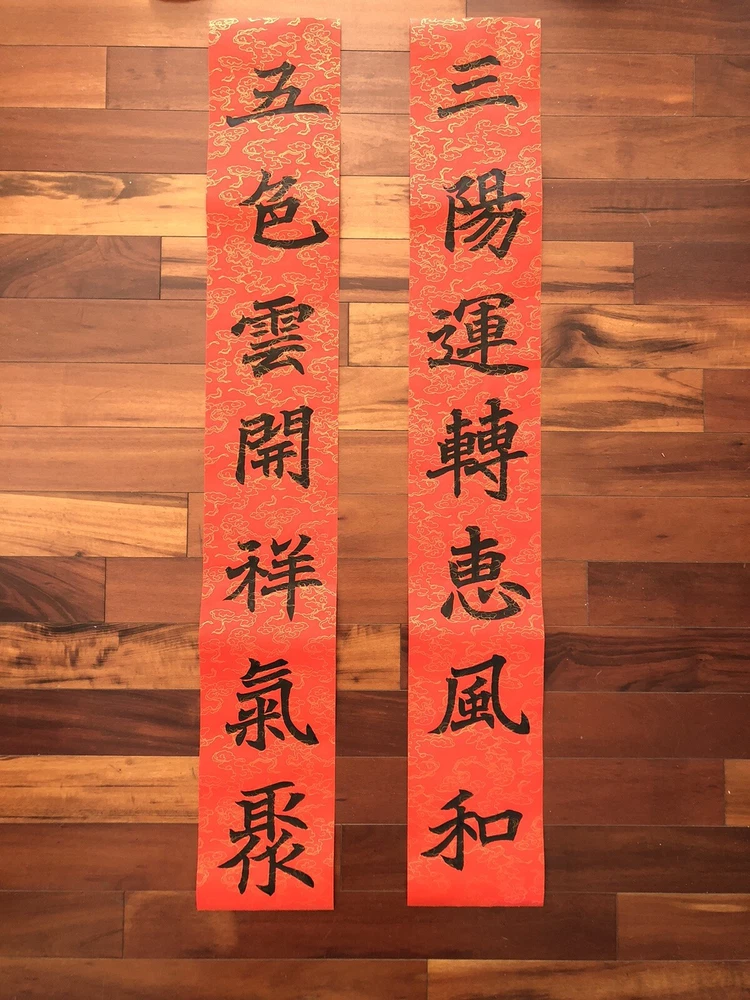 三陽運轉恵風和
五色雲開祥氣聚